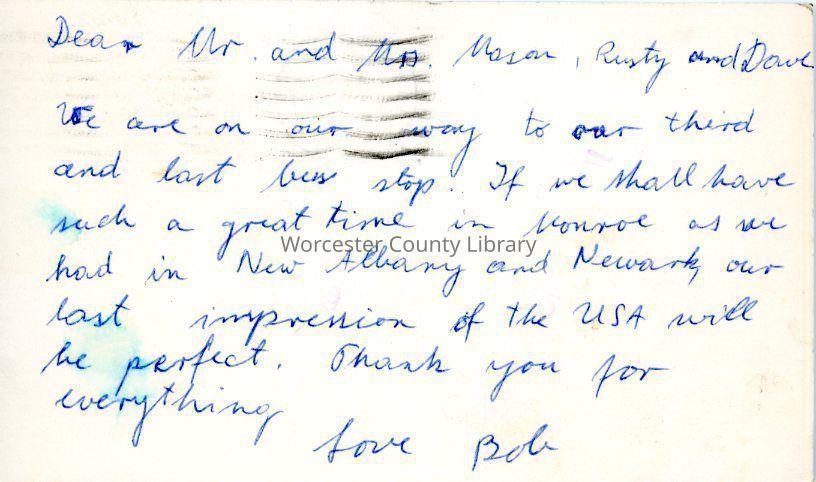 Dear Mr. and Mrs. Mason, Rusty and Dave
We are on our way to our third
and last bus stop. If we shall have
such a great time in Monroe as we
Worcester County Library
had in New Albany and Newark, our
last impression of the USA will
be perfect. Thank you for
everything
Love Bob